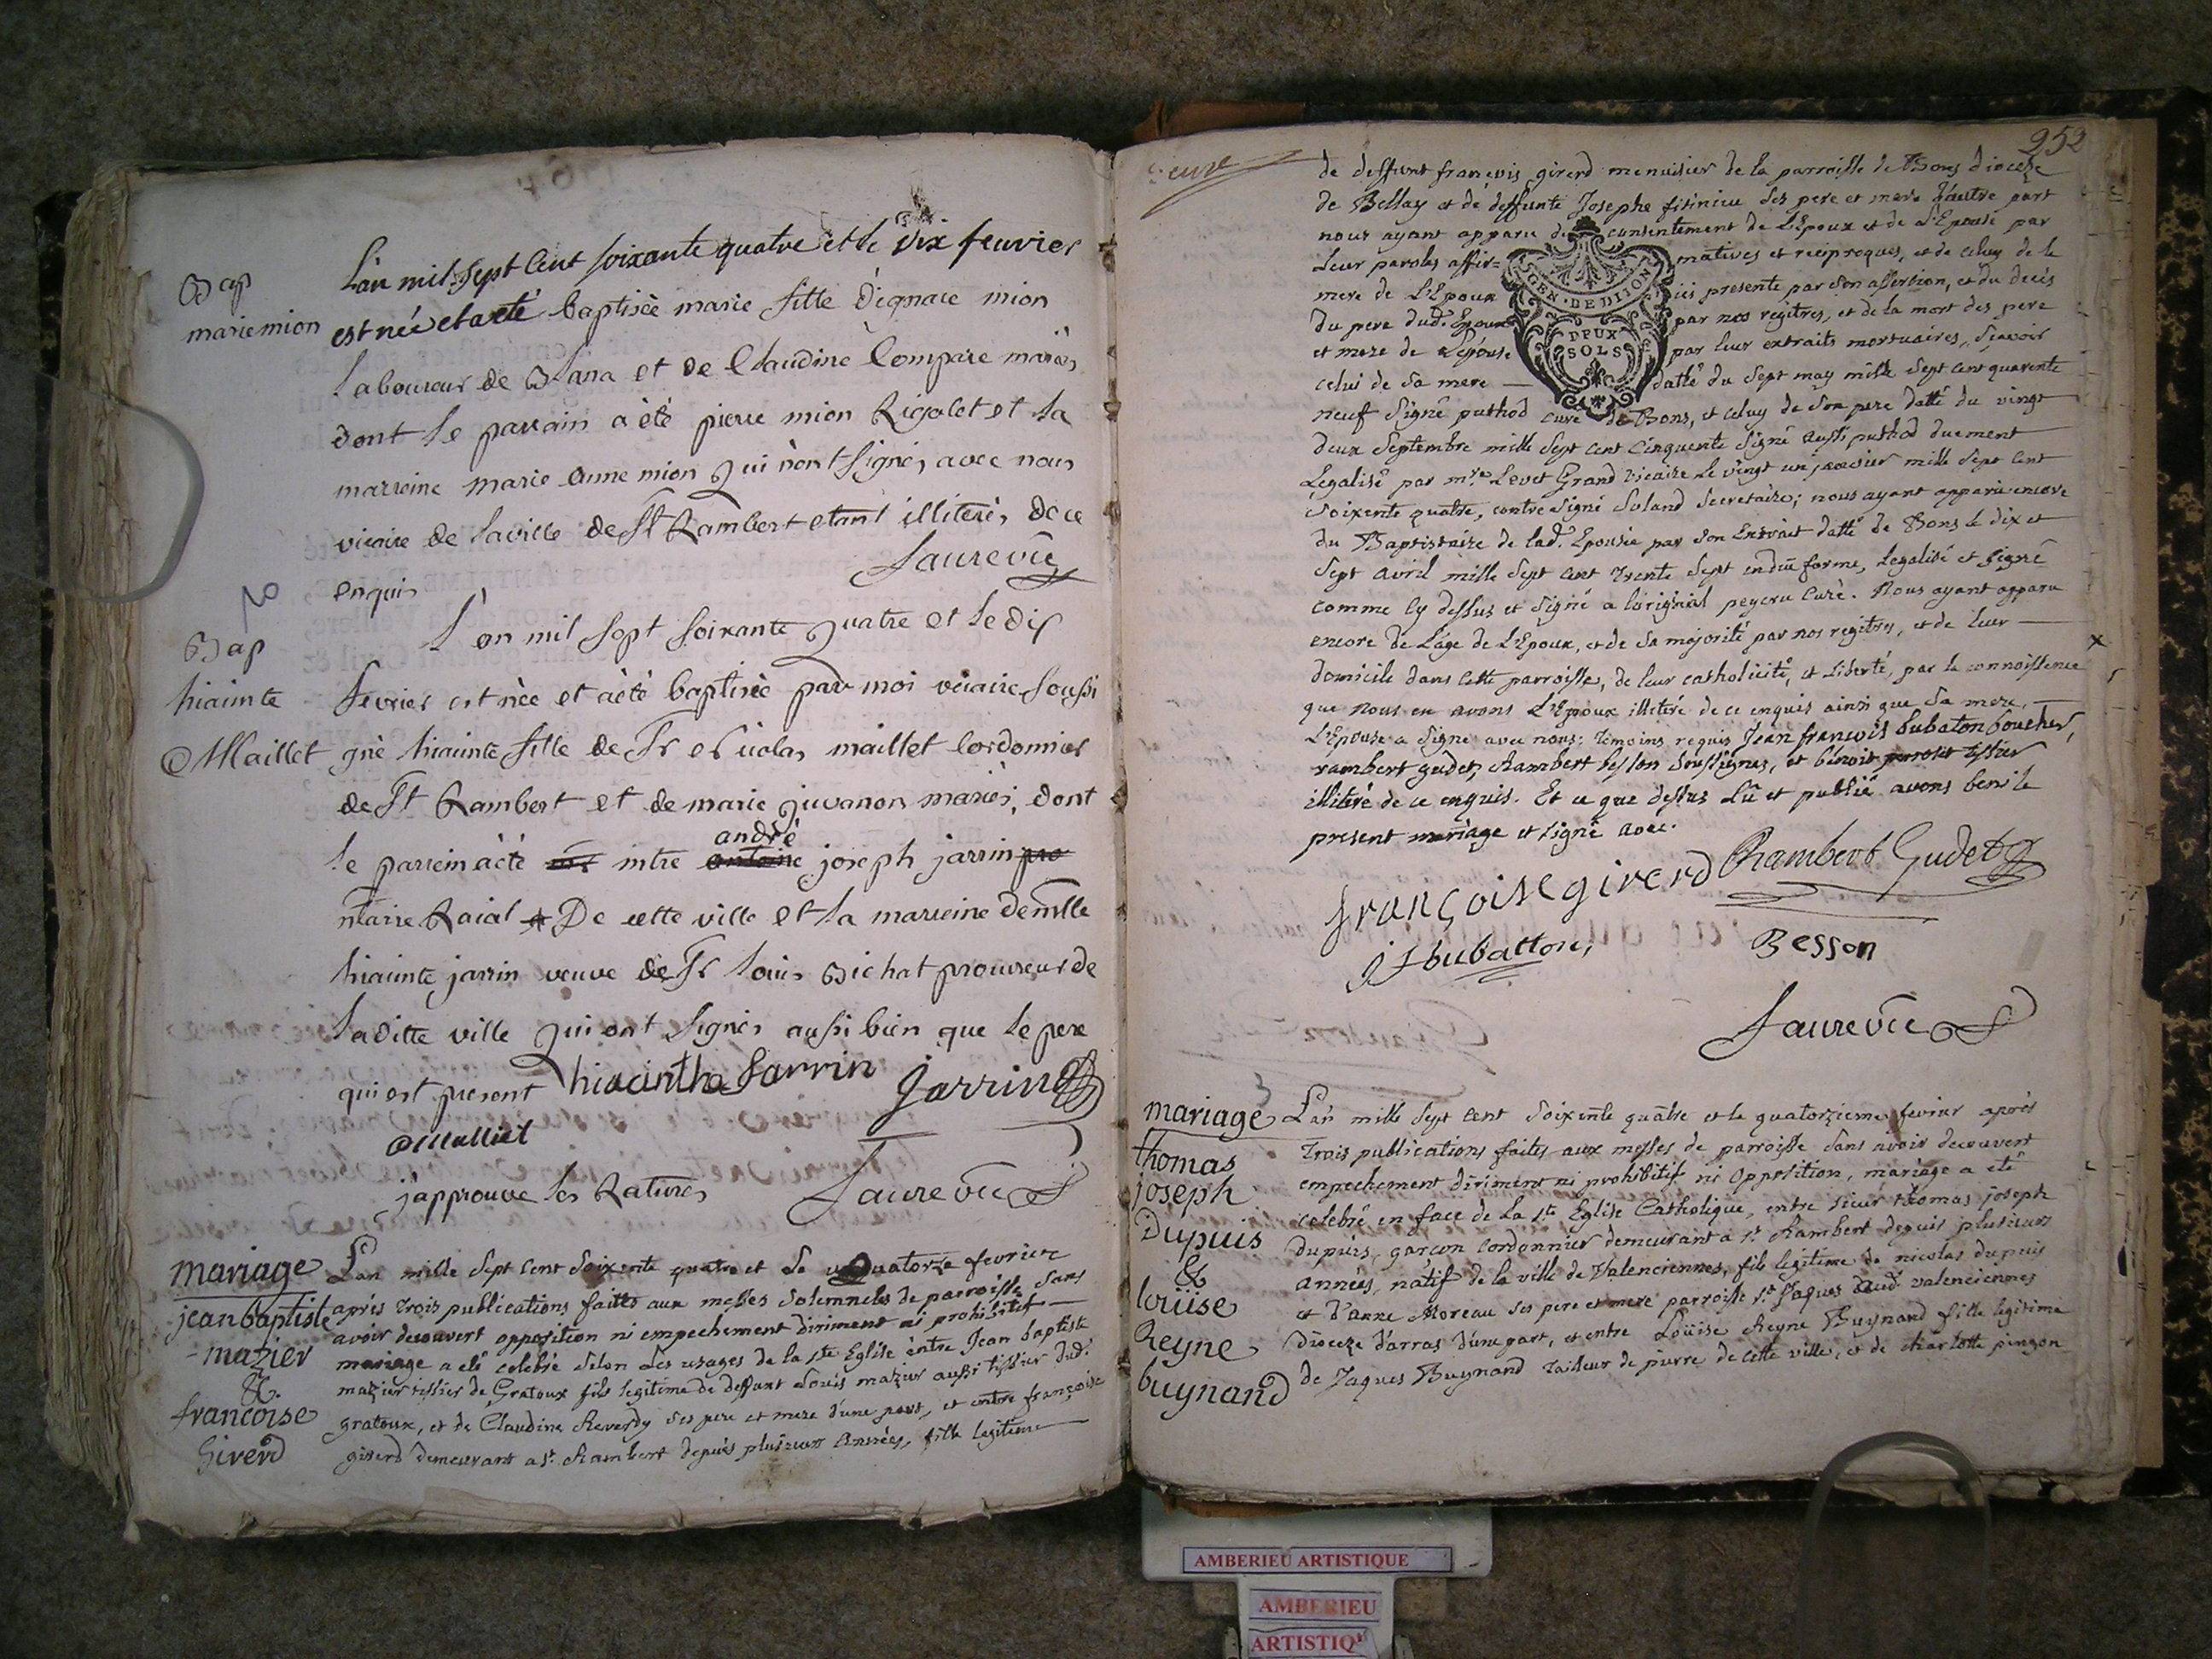 Bap
marie mion
L'an mil sept Cent soixante quatre et le dix feuvrier
est née et a eté baptisée marie fille d'ignace mion
laboureur de Blana et de Claudine Compare mariés
dont le parrain a èté pierre mion Rigolet et la
marreine marie anne mion qui n'ont signés avec nous
vicaire de la ville de St Rambert etant illiterés de ce
enquis
Faure vic
Bap
hiainte
Maillet
L'an mil sept soixante quatre et le dix
fevrier est nèe et a èté baptisèe par moi vicaire soussi
gnè hiainte fille de Sr Nicolas maillet Cordonnier
de St Rambert et de marie juvanon mariés, dont
le parrein a èté mtre andrè joseph jarrin
ntaire Roial De cette ville et la marreine demlle
hiainte jarrin veuve de Sr louis Bichat procureur de
laditte ville qui ont signés aussi bien que le pere
qui est present hiacinthe Jarrin Jarrin
Malliet
j'approuve les Ratures Faure vic
mariage
jean baptiste
- mazier
&
francoise
Girerd
L'an mille sept cent soixente quatre et le quatorze fevrier
après trois publications faites aux messes solemneles de parroisse sans
avoir decouvert opposition ni empechement diriment ni prohibitif —
mariage a eté celebré selon les usages de la ste Eglise èntre Jean baptiste
mazier tissier de Gratoux fils legitime de deffunt Louis mazier aussi tissier dud.
gratoux, et de Claudine Reverdy ses pere et mere d'une part, et entre françoise
girerd demeurant a st. Rambert depuis plusieurs Années, fille legitime —
252
de deffunt françois girerd menuisier de la parroisse de Bons dioceze
de Bellay et de deffunte Josephe ses pere et mere d'autre part
nous ayant apparu du consentement de L'Epoux et de L'Epouse par
Leur paroles affir= matives et reciproques, et de celuy de la
mere de L'Epoux ici presente par son assertion, et du decés
du pere dud. Epoux par nos regitres, et de la mort des pere
et mere de L'epouse par leur extraits mortuaires, sçavoir
celui de sa mere — datté du sept may mille sept cent quarente
neuf signé puthod curé de Bons, et celuy de son pere datté du vingt
deux septembre mille sept cent cinquente signé aussi puthod duement
Legalisé par mre Levet Grand vicaire le vingt un janvier mille sept cent
soixente quatre, contre signé Soland Secretaire; nous ayant apparu encore
du Baptistaire de lad. Epouse par son Extrait datté de Bons le dix et
sept avril mille sept cent trente sept en duë forme, Legalisé et signé
comme cy dessus et signé a l'original peyeru Curé. Nous ayant apparu
encore de L'age de L'Epoux, et de sa majorité par nos regitres, et de leur —
domicile dans cette parroisse, de leur catholicité, et Liberté, par la connoissence
que nous en avons L'Epoux illiteré de ce enquis ainsi que sa mere, —
L'Epouse a signé avec nous: Temoins requis Jean francois bubaton boucher,
rambert gudet, Rambert besson soussignes, et benoit perroset tissier
illiteré de ce enquis. Et ce que dessus Lû et publié avons beni le
present mariage et signé avec.
GEN · DE DIJON
DEUX
SOLS
françoise girerd Rambert Gudet
J f bubatton, Besson
Faure vic
mariage
thomas
joseph
Dupuis
&
loüise
Reyne
buynand
L'an mille sept cent soixente quatre et le quatorzieme fevrier après
trois publications faites aux messes de parroisse sans avoir decouvert
empechement diriment ni prohibitif ni opposition, mariage a eté
celebré en face de la ste Eglise Catholique, entre sieur thomas joseph
dupuis, garçon cordonnier demeurant a st Rambert depuis plusieurs
années, natif de la ville de Valenciennes, fils legitime de nicolas dupuis
et d'anne Moreau ses pere et mere parroisse st. Jaques dud. valenciennes
Dioceze d'arras d'une part, et entre Loüise Reyne Buynand fille legitime
de Jaques Buynand tailleur de pierre de cette ville, et de charlotte pingon
AMBERIEU ARTISTIQUE
AMBERIEU
ARTISTIQ